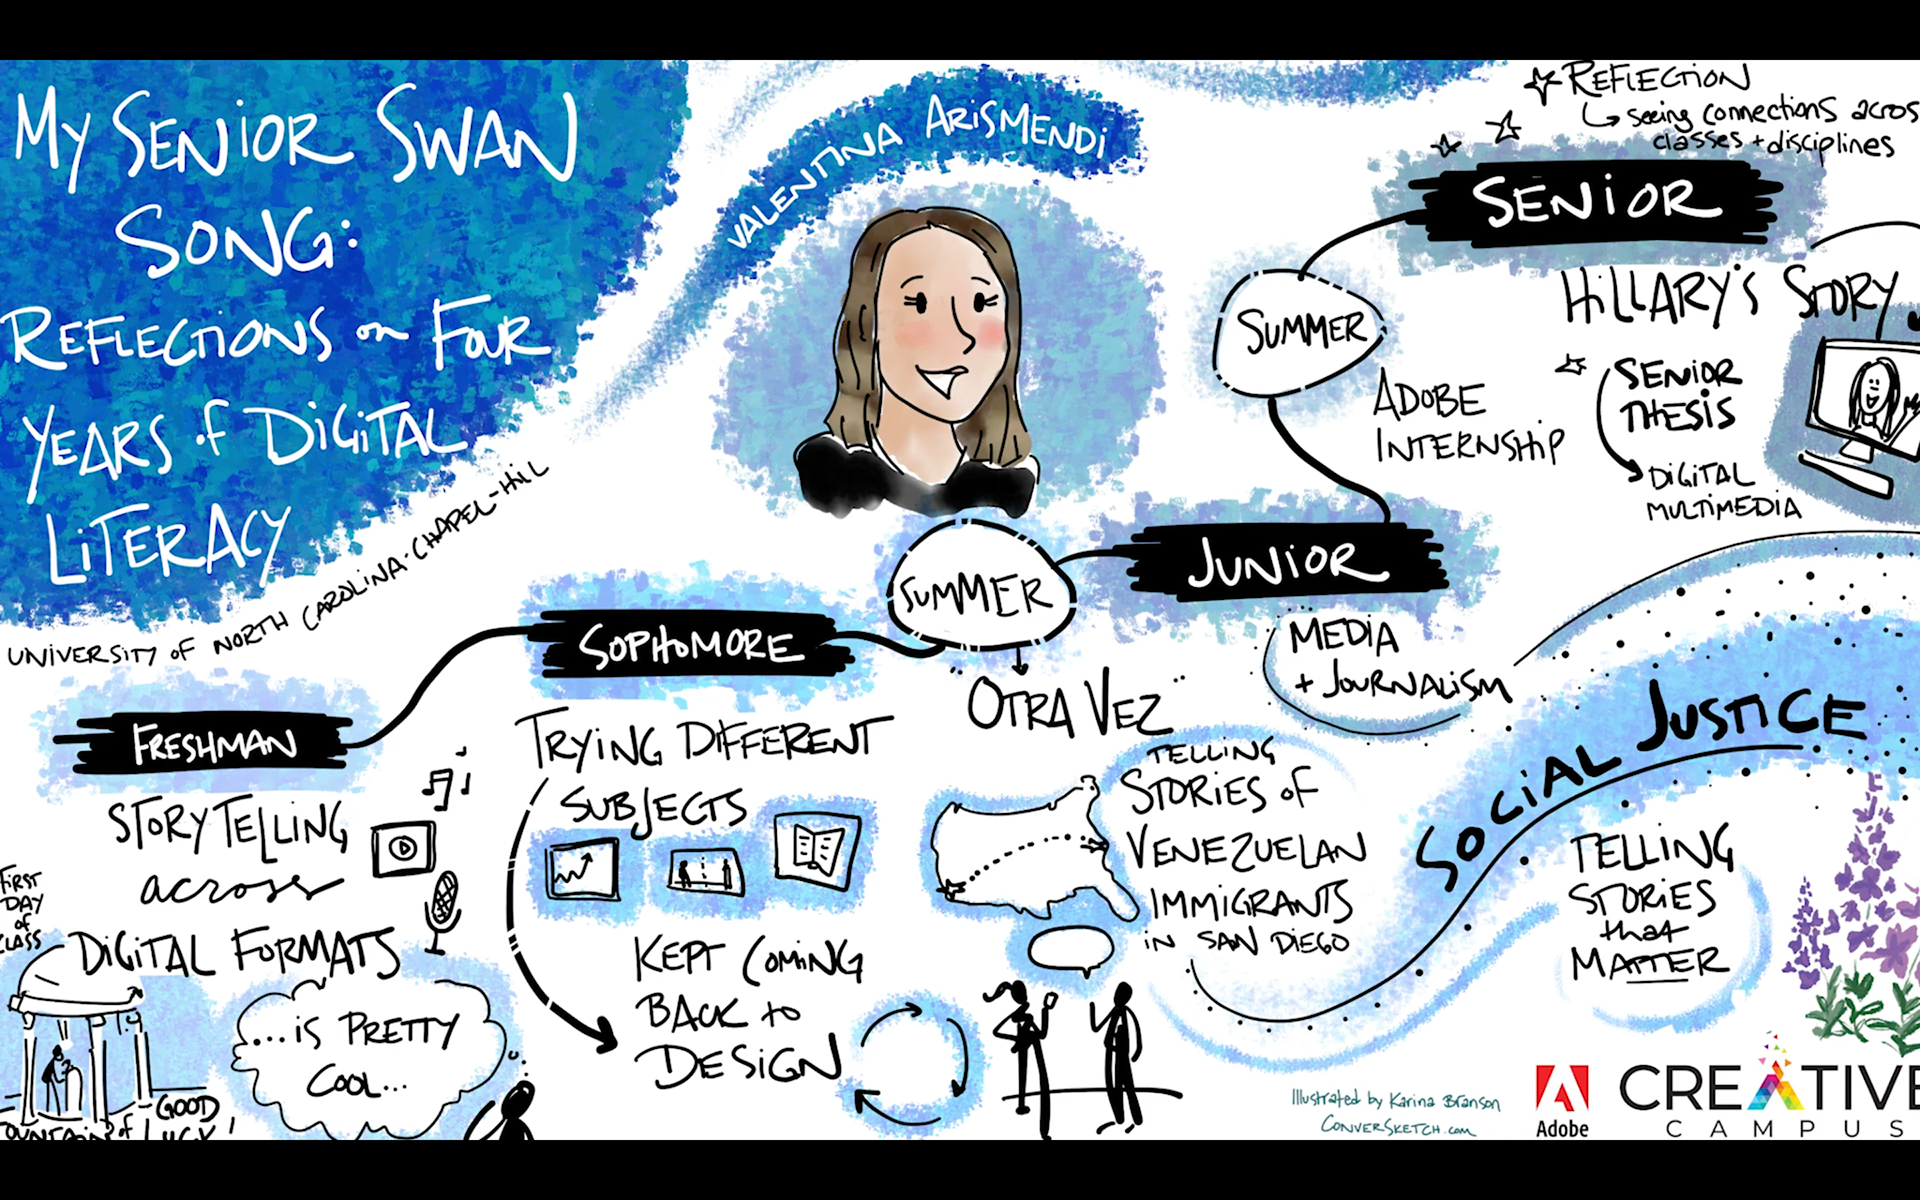 My Senior Swan
Song:
Reflections on Four
Years of Digital
Literacy
University of North Carolina-Chapel-Hill
Valentina Arismendi
Freshman
Storytelling
across
Digital Formats
First
Day
of
Class
...is pretty
cool...
Good
Luck!
Sophomore
Trying Different
Subjects
Kept coming
back to
Design
Summer
Otra Vez
Telling
Stories of
Venezuelan
Immigrants
in San Diego
Junior
Media
+ Journalism
Summer
Adobe
Internship
Senior
Reflection
seeing connections
classes + disciplines
Hillary's Story
Senior
Thesis
Digital
Multimedia
Social Justice
Telling
Stories
that
Matter
Illustrated by Karina Branson
ConverSketch.com
Adobe
CREATIVE
CAMPUS